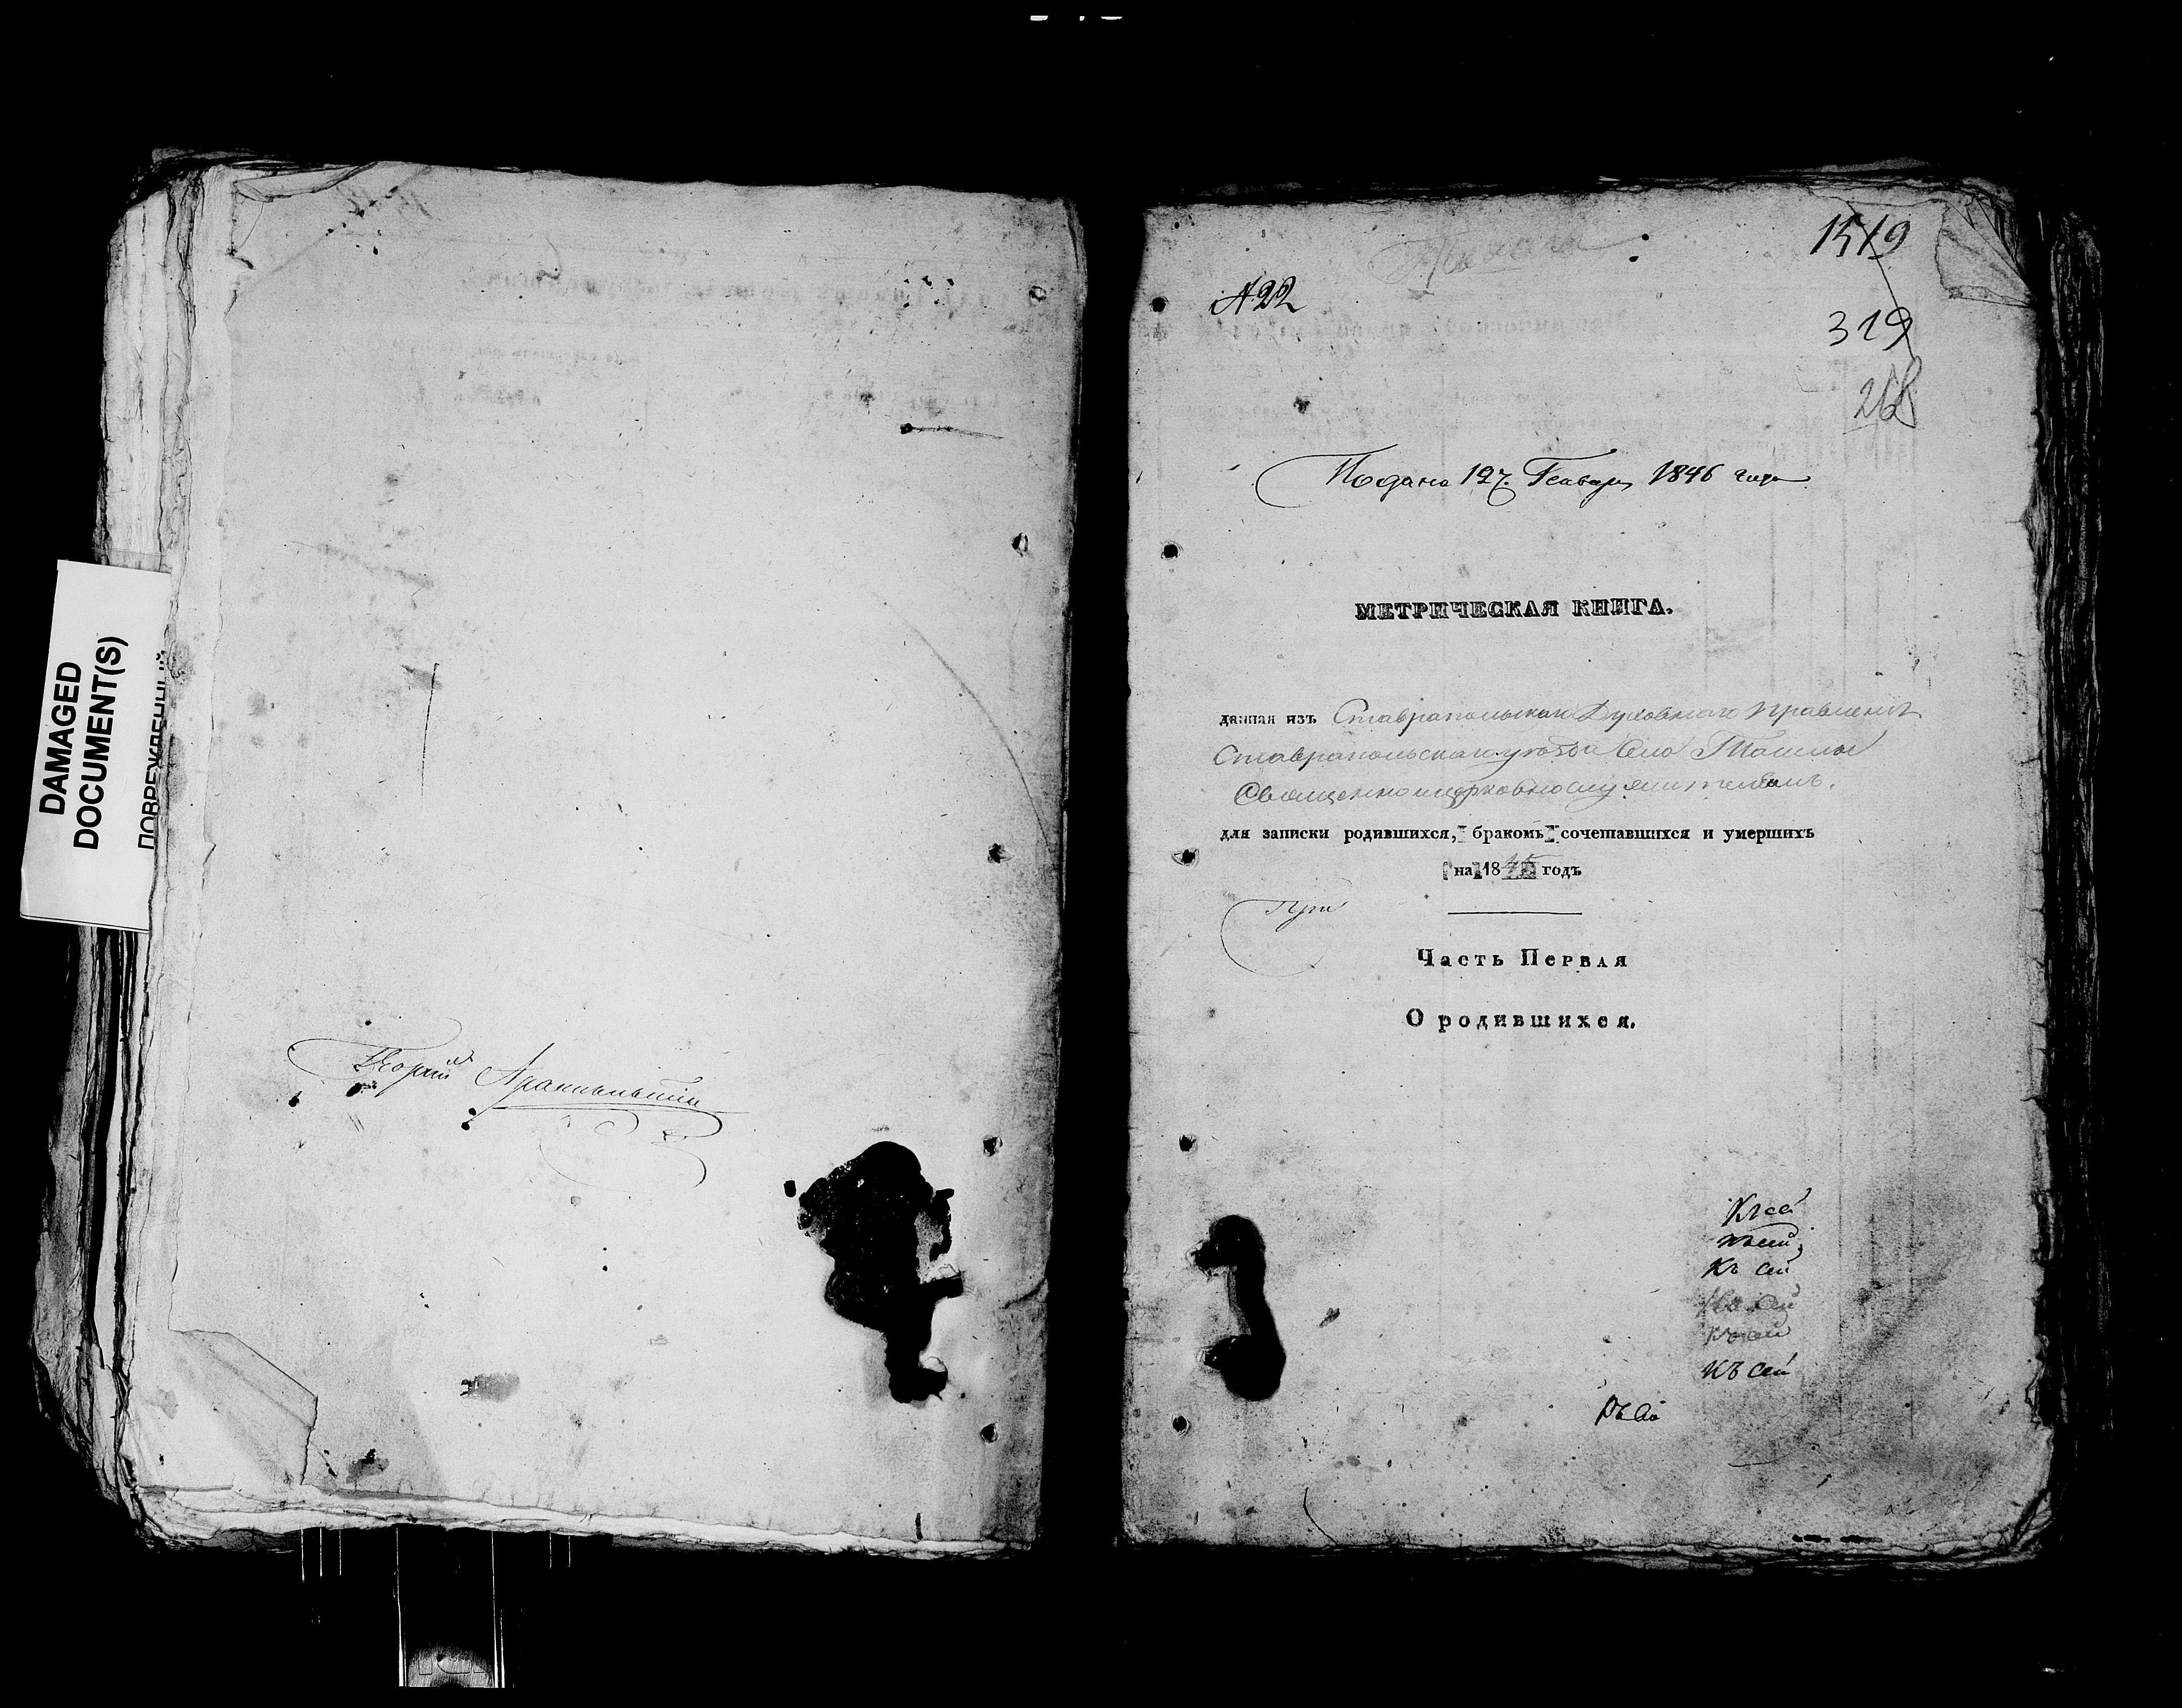 DAMAGED
DOCUMENT(S)
ПОВРЕЖДЕННЫЙ
Георгій
1519
№22
319
268
Подана 19 Генваря 1846 года
МЕТРИЧЕСКАЯ КНИГА.
данная изъ Ставропольскаго Духовнаго Правленія
Ставропольскаго уѣзда Села Ташлы
Священноцерковнослужителямъ.
для записки родившихся, бракомъ сочетавшихся и умершихъ
на 1845 годъ
При
Часть Первая
О родившихся.
Къ сей
Къ сей
Къ сей
Къ сей
Къ сей
Къ сей